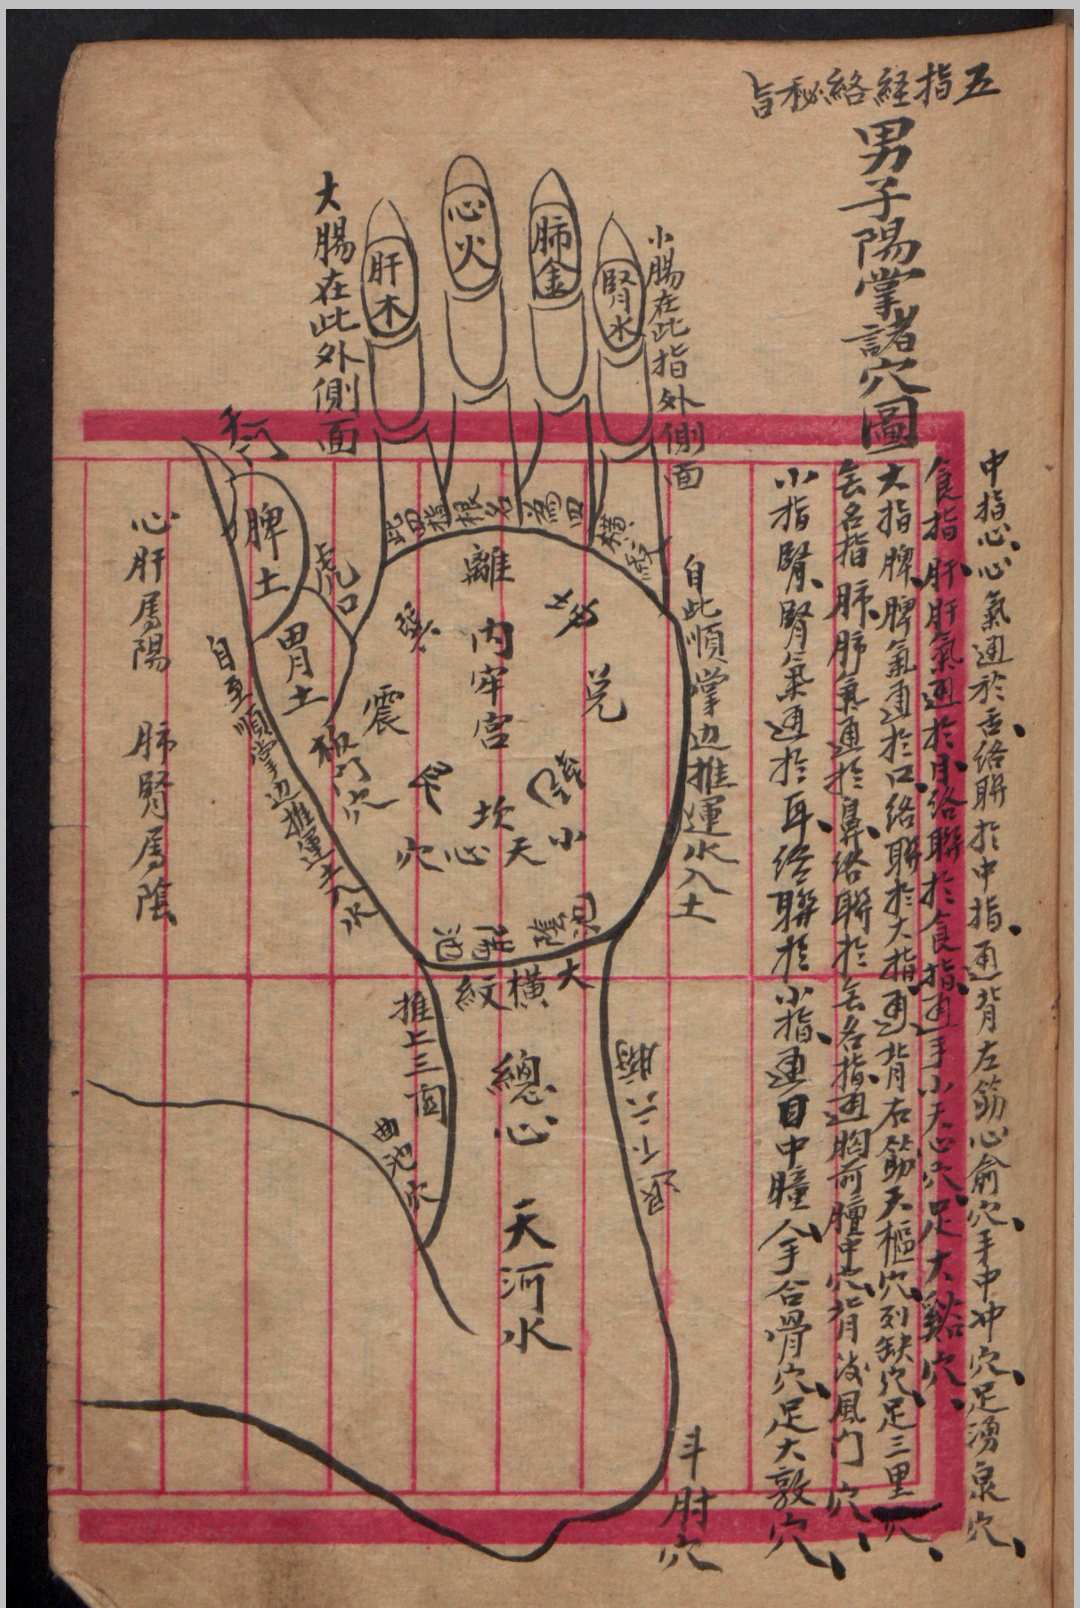 五指経絡秘旨
男子陽掌諸穴圖
中指心心氣通於舌絡聯於中指通背左筋心俞穴手中冲穴足湧泉穴
食指肝肝氣通於目絡聯於食指通手小天心穴足大谿穴
大指脾脾氣通於口絡聯於大指通背右筋天樞穴列缺穴足三里穴
無名指肺肺氣通於鼻絡聯於無名指通胸前膻中穴背後風门穴
小指腎腎氣通於耳絡聯於小指通目中瞳人手合骨穴足大敦穴
小腸在此指外側面
腎水
肺金
心火
肝木
大腸在此外側面
脾土
虎口
胃土
自此順掌边推運水入土
離
內牢宮
坎
兌
震
艮
小天心穴
大橫紋
總心
天河水
推上三関
曲池穴
斗肘穴
心肝属陽 肺腎属陰